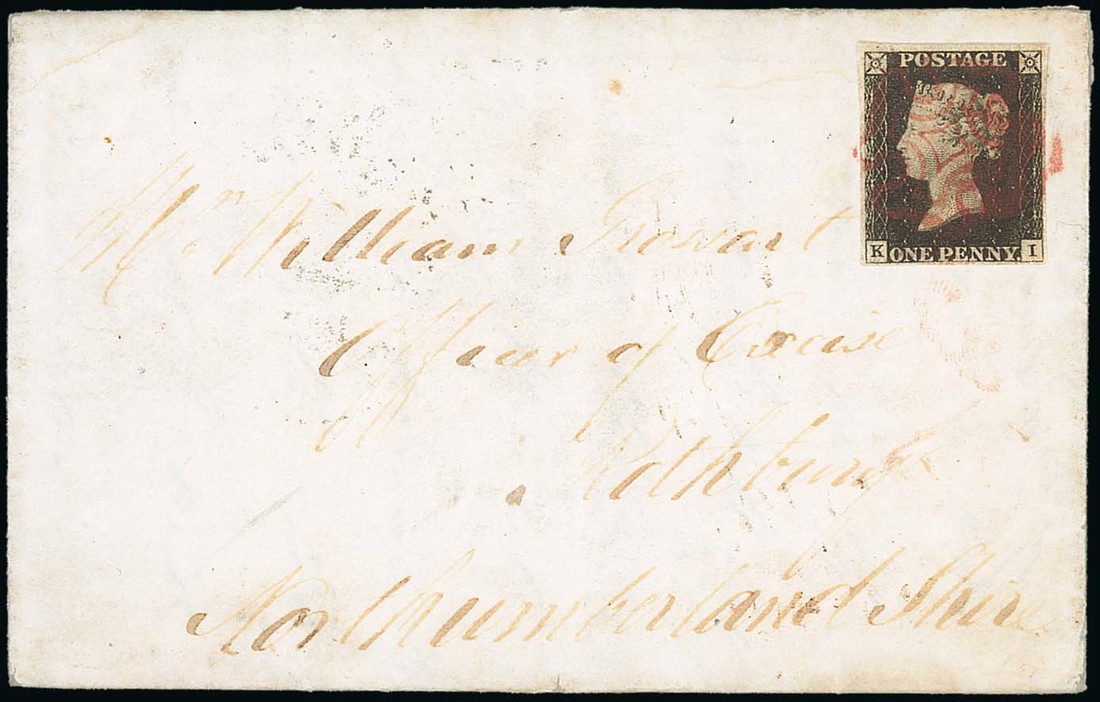 POSTAGE
K ONE PENNY I
Mr William Trowart
Officer of Excise
Rothbury
Northumberland Shire